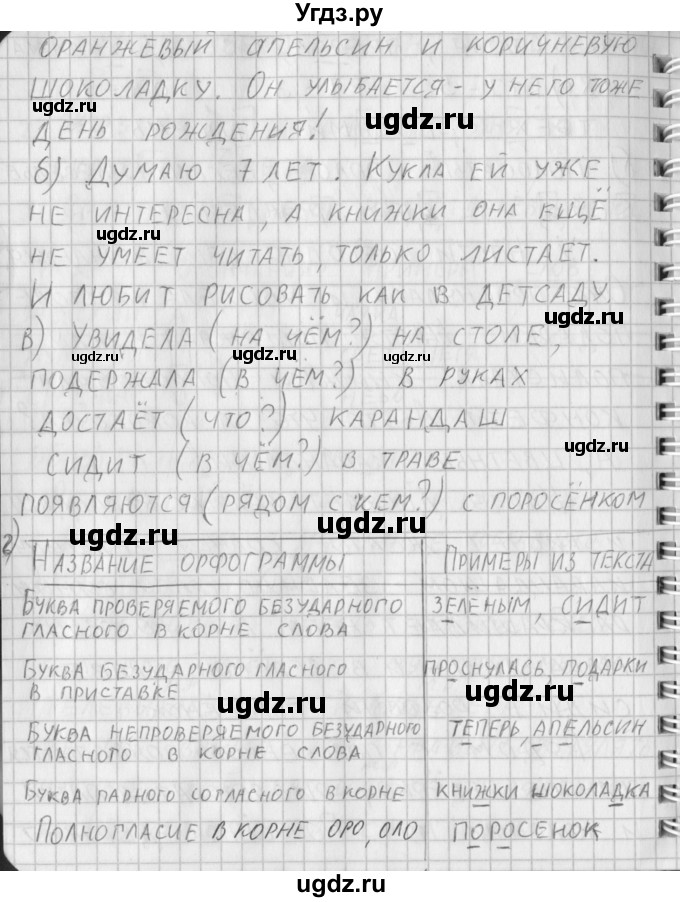 Угдз.ру
ОРАНЖЕВЫЙ АПЕЛЬСИН И КОРИЧНЕВУЮ
ШОКОЛАДКУ. ОН УЛЫБАЕТСЯ - У НЕГО ТОЖЕ
ugdz.ru ugdz.ru
ugdz.ru
ДЕНЬ РОЖДЕНИЯ!
б) ДУМАЮ 7 ЛЕТ. КУКЛА ЕЙ УЖЕ
НЕ ИНТЕРЕСНА, А КНИЖКИ ОНА ЕЩЁ
ugdz.ru
НЕ УМЕЕТ ЧИТАТЬ, ТОЛЬКО ЛИСТАЕТ.
И ЛЮБИТ РИСОВАТЬ КАК В ДЕТСАДУ.
ugdz.ru
В) УВИДЕЛА (НА ЧЁМ?) НА СТОЛЕ,
ugdz.ru ugdz.ru ugdz.ru
ПОДЕРЖАЛА (В ЧЁМ?) В РУКАХ
ДОСТАЁТ (ЧТО?) КАРАНДАШ
ugdz.ru
СИДИТ (В ЧЁМ?) В ТРАВЕ
ПОЯВЛЯЮТСЯ (РЯДОМ С КЕМ?) С ПОРОСЁНКОМ
ugdz.ru
г)
НАЗВАНИЕ ОРФОГРАММЫ ПРИМЕРЫ ИЗ ТЕКСТА
БУКВА ПРОВЕРЯЕМОГО БЕЗУДАРНОГО ЗЕЛЁНЫМ, СИДИТ
ГЛАСНОГО В КОРНЕ СЛОВА
БУКВА БЕЗУДАРНОГО ГЛАСНОГО ПРОСНУЛАСЬ, ПОДАРКИ
В ПРИСТАВКЕ
ugdz.ru ugdz.ru
БУКВА НЕПРОВЕРЯЕМОГО БЕЗУДАРНОГО ТЕПЕРЬ, АПЕЛЬСИН
ГЛАСНОГО В КОРНЕ СЛОВА
БУКВА ПАРНОГО СОГЛАСНОГО В КОРНЕ КНИЖКИ ШОКОЛАДКА
ugdz.ru ugdz.ru
ПОЛНОГЛАСИЕ В КОРНЕ ОРО, ОЛО ПОРОСЕНОК
ugdz.ru